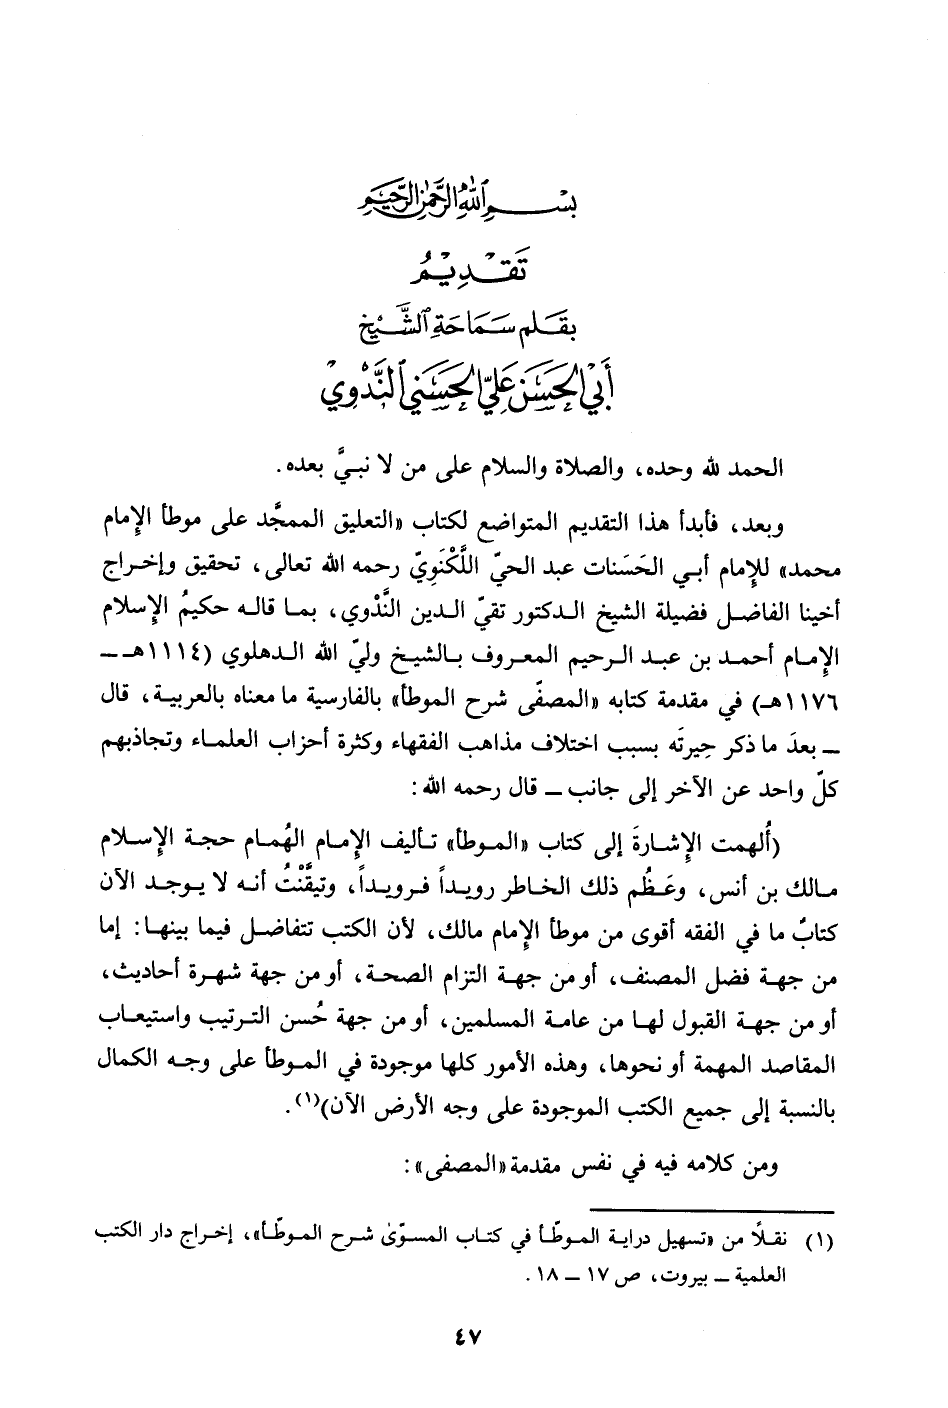 بسم الله الرحمن الرحيم
تَقْدِيْمُ
بِقَلَم سَمَاحَةِ الشَّيْخ
أَبي الحَسَن عَلِيّ الحَسَني النَّدْوِي
الحمد لله وحده، والصلاة والسلام على من لا نبيَّ بعده.
وبعد، فأبدأ هذا التقديم المتواضع لكتاب «التعليق الممجَّد على موطأ الإمام
محمد» للإمام أبي الحَسَنات عبد الحيّ اللَّكْنَوِيّ رحمه الله تعالى، تحقيق وإخراج
أخينا الفاضل فضيلة الشيخ الدكتور تقيّ الدين النَّدْوي، بما قاله حكيمُ الإسلام
الإمام أحمد بن عبد الرحيم المعروف بالشيخ وليّ الله الدهلوي (١١١٤هـ ــ
١١٧٦هـ) في مقدمة كتابه «المصفّى شرح الموطأ» بالفارسية ما معناه بالعربية، قال
ــ بعدَ ما ذكر حِيرتَه بسبب اختلاف مذاهب الفقهاء وكثرة أحزاب العلماء وتجاذبهم
كلّ واحد عن الآخر إلى جانب ــ قال رحمه الله:
(أُلهمت الإشارةَ إلى كتاب «الموطأ» تأليف الإمام الهُمام حجة الإسلام
مالك بن أنس، وعَظُم ذلك الخاطر رويداً فرويداً، وتيقَّنْتُ أنه لا يوجد الآن
كتابٌ ما في الفقه أقوى من موطأ الإمام مالك، لأن الكتب تتفاضل فيما بينها: إما
من جهة فضل المصنف، أو من جهة التزام الصحة، أو من جهة شهرة أحاديث،
أو من جهة القبول لها من عامة المسلمين، أو من جهة حُسن الترتيب واستيعاب
المقاصد المهمة أو نحوها، وهذه الأمور كلها موجودة في الموطأ على وجه الكمال
بالنسبة إلى جميع الكتب الموجودة على وجه الأرض الآن)(١).
ومن كلامه فيه في نفس مقدمة «المصفى»:
(١) نقلاً من «تسهيل دراية الموطّأ في كتاب المسوّىٰ شرح الموطّأ»، إخراج دار الكتب
العلمية ــ بيروت، ص ١٧ ــ ١٨.
٤٧